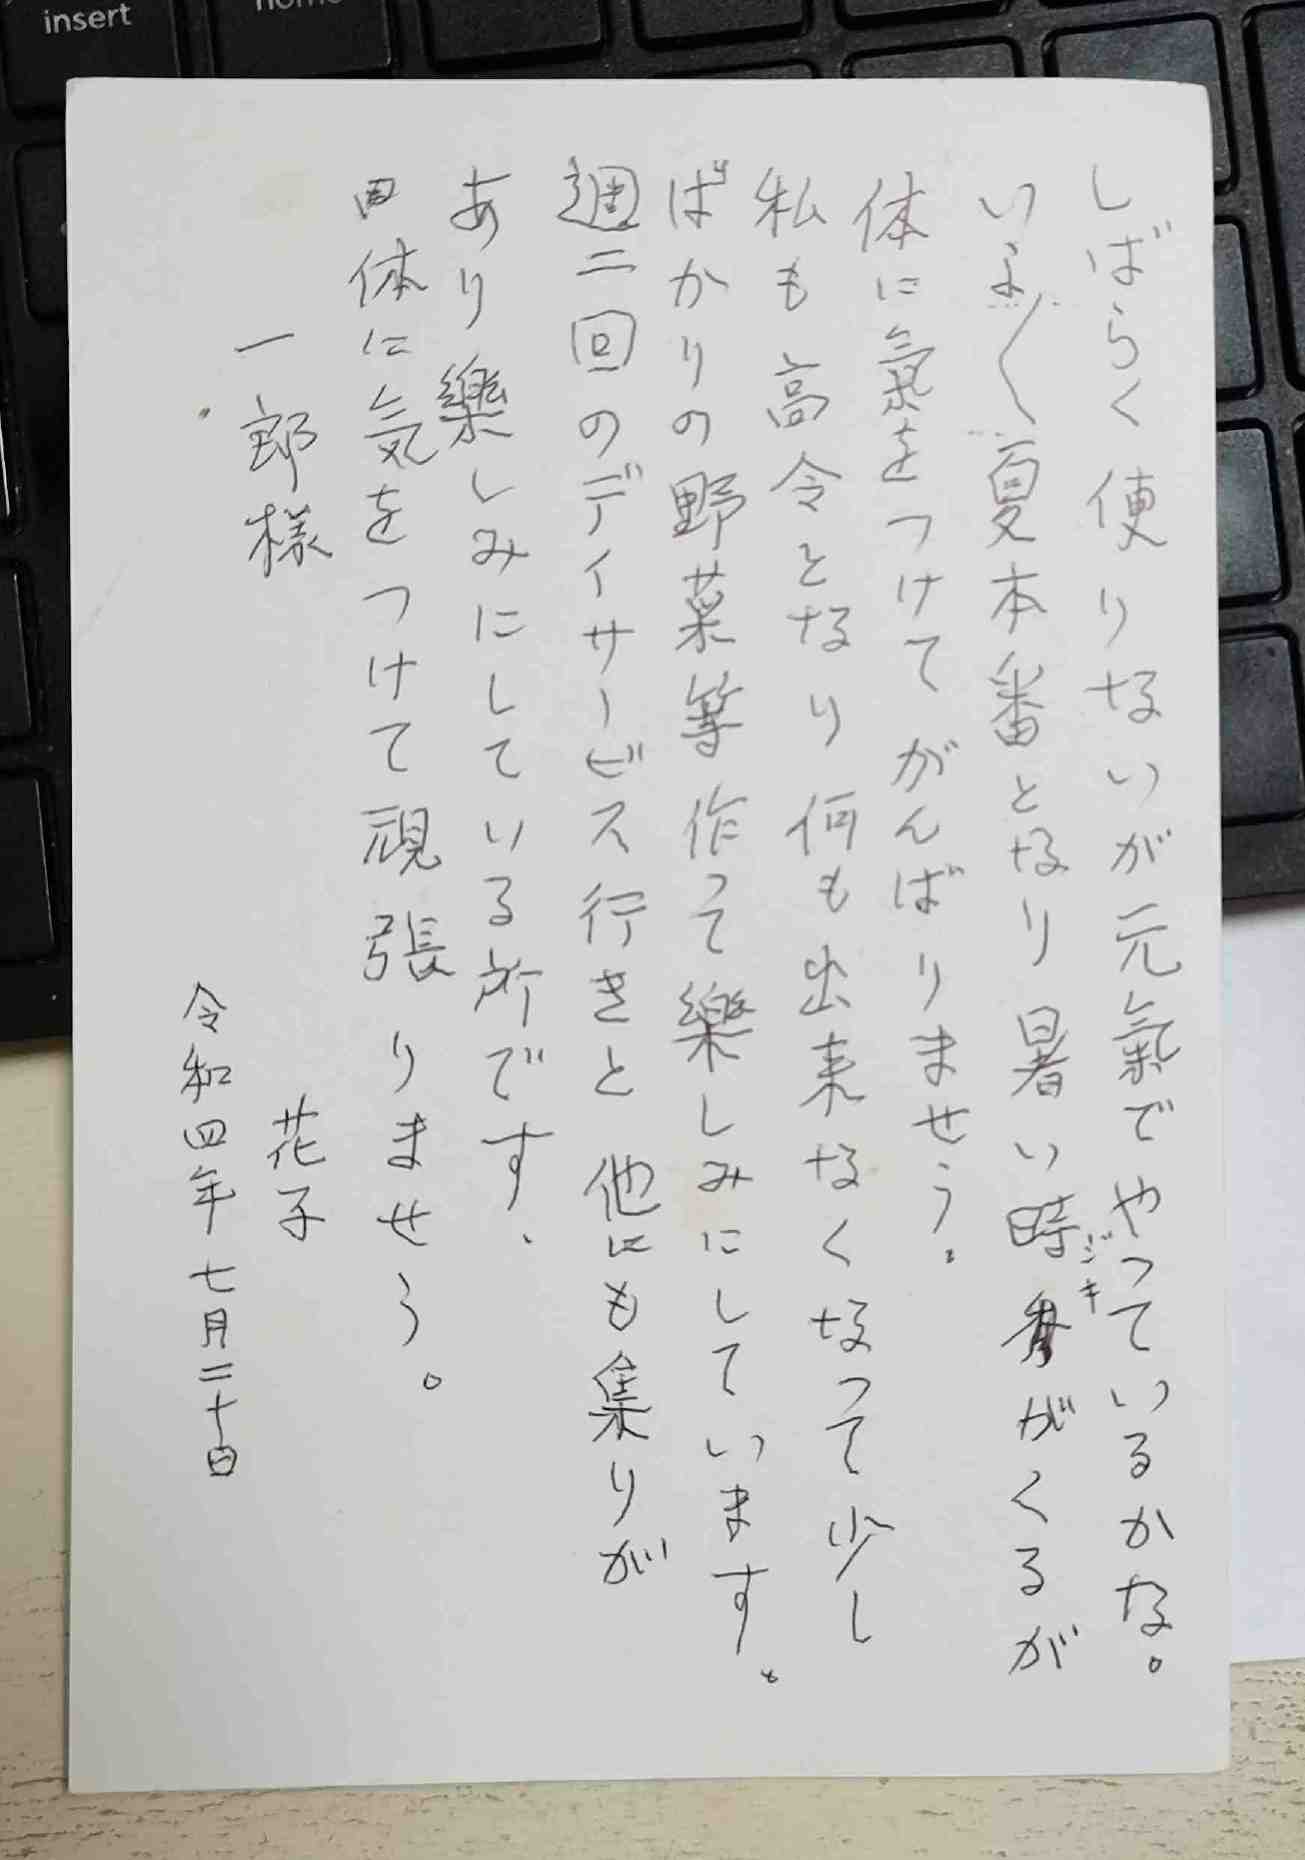 insert
home
しばらく便りないが元氣でやっているかな。
いよ〱夏本番となり暑い時ジキがくるが
体に氣をつけてがんばりませう。
私も高令となり何も出来なくなって少し
ばかりの野菜等作って樂しみにしています。
週二回のデイサービス行きと他にも集りが
あり樂しみにしている所です、
体に気をつけて頑張りませう。
一郎様
花子
令和四年七月二十日